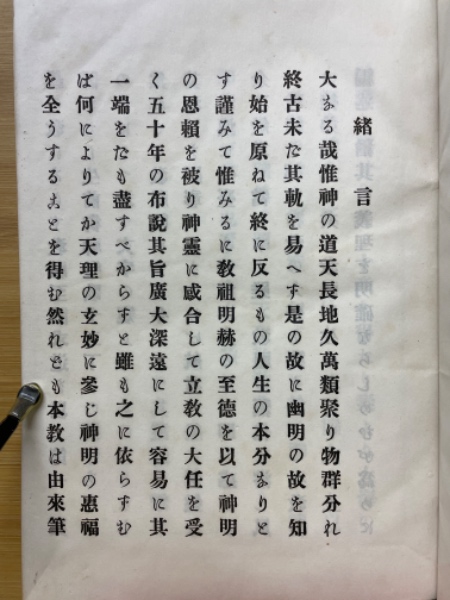 緒言
大なる哉惟神の道天長地久萬類聚り物群分れ
終古未た其軌を易へす是の故に幽明の故を知
り始を原ねて終に反るもの人生の本分なりと
す謹みて惟みるに教祖明赫の至德を以て神明
の恩賴を被り神靈に感合して立教の大任を受
く五十年の布說其旨廣大深遠にして容易に其
一端をたも盡すべからすと雖も之に依らすむ
ば何によりてか天理の玄妙に參じ神明の惠福
を全うすることを得む然れども本教は由來筆